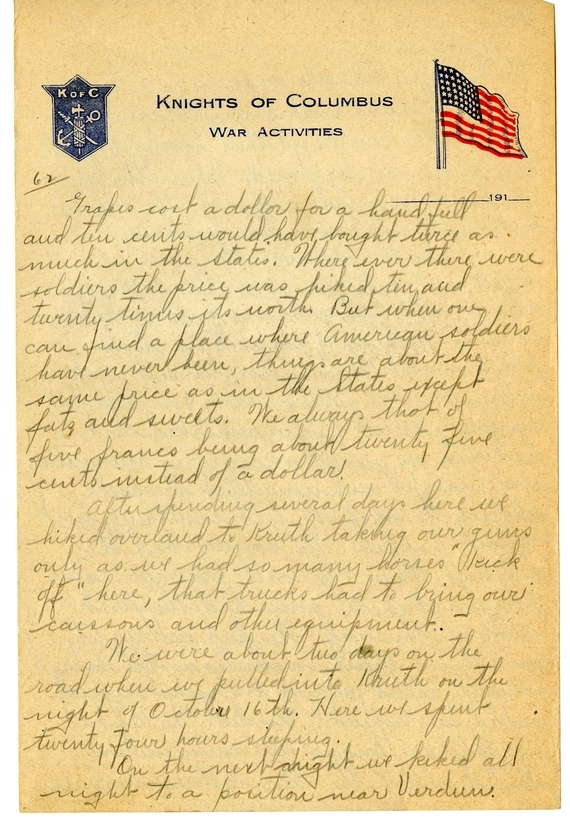 K OF C
KNIGHTS OF COLUMBUS
WAR ACTIVITIES
62
191
Grapes cost a dollar for a hand full
and ten cents would have bought twice as
much in the states. Where ever there were
soldiers the price was hiked ten and
twenty times its worth. But when one
can find a place where American soldiers
have never been, things are about the
same price as in the States except
fats and sweets. We always thot of
five francs being about twenty five
cents instead of a dollar.
After spending several days here we
hiked overland to Kruth taking our guns
only as we had so many horses "kick
off" here, that trucks had to bring our
caissons and other equipment.
We were about two days on the
road when we pulled into Kruth on the
night of October 16th. Here we spent
twenty four hours sleeping.
On the next night we hiked all
night to a position near Verdun.